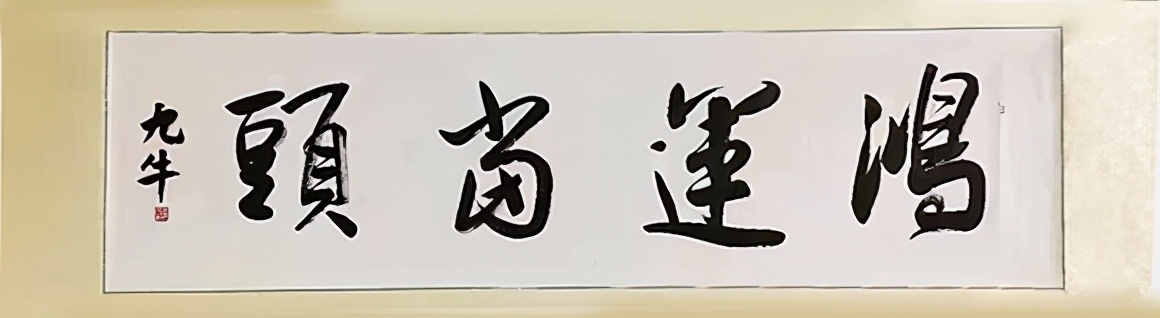 鴻運當頭
九牛